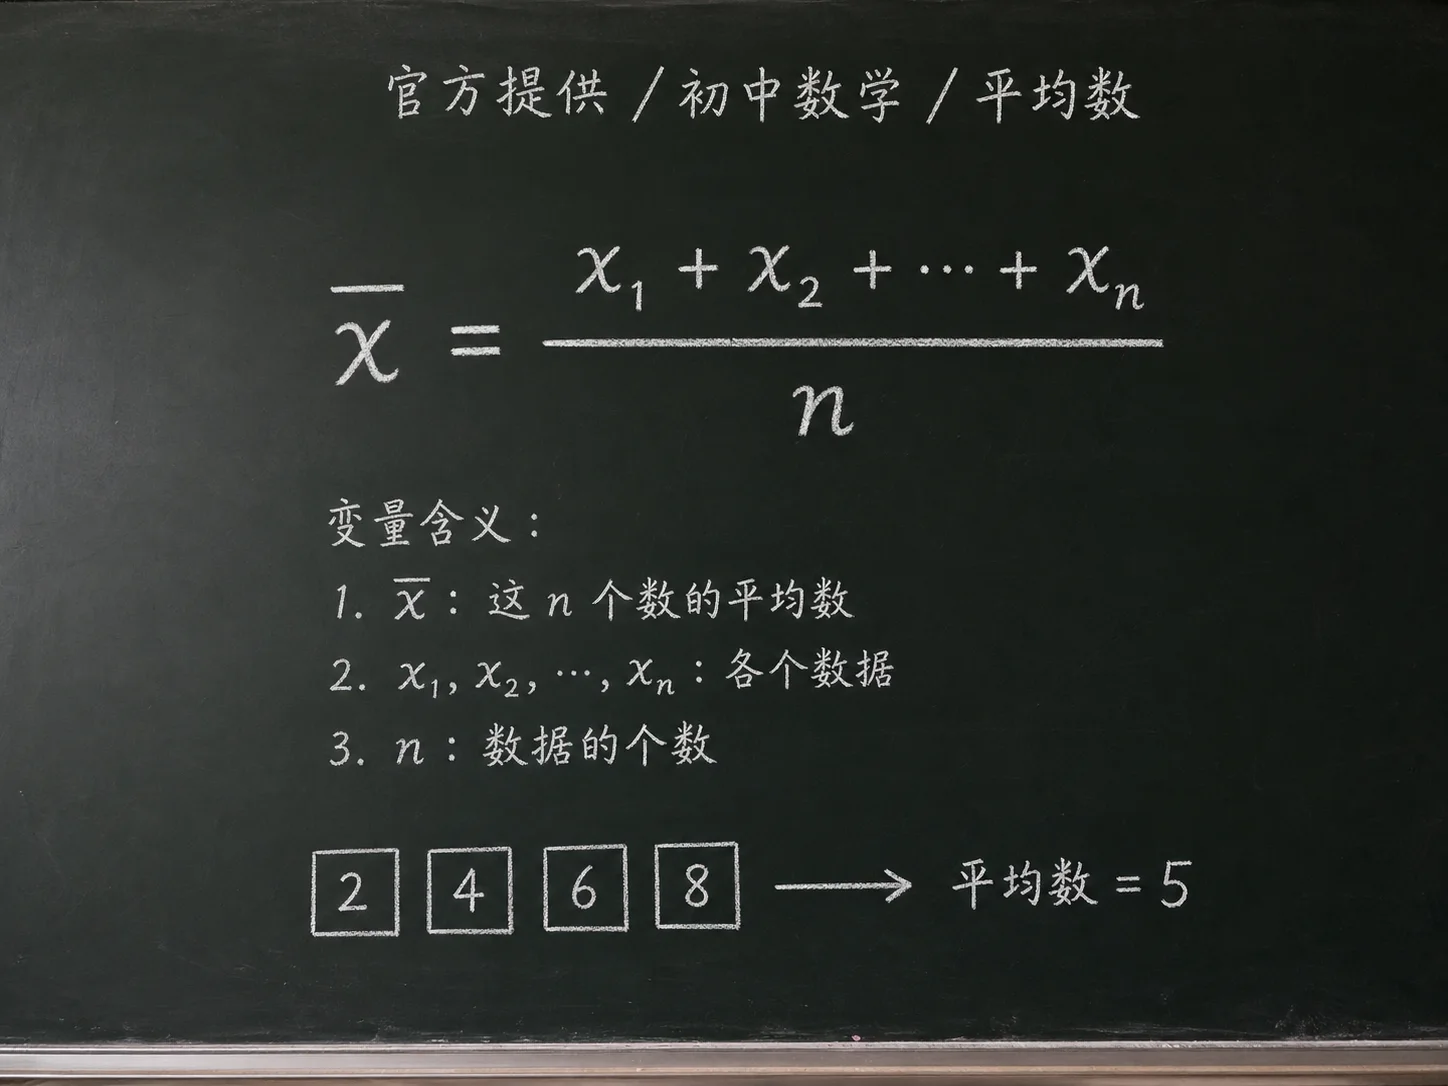 官方提供 / 初中数学 / 平均数
x̄ = (x₁ + x₂ + ⋯ + xₙ) / n
变量含义：
1. x̄：这 n 个数的平均数
2. x₁, x₂, ⋯, xₙ：各个数据
3. n：数据的个数
2 4 6 8 → 平均数 = 5